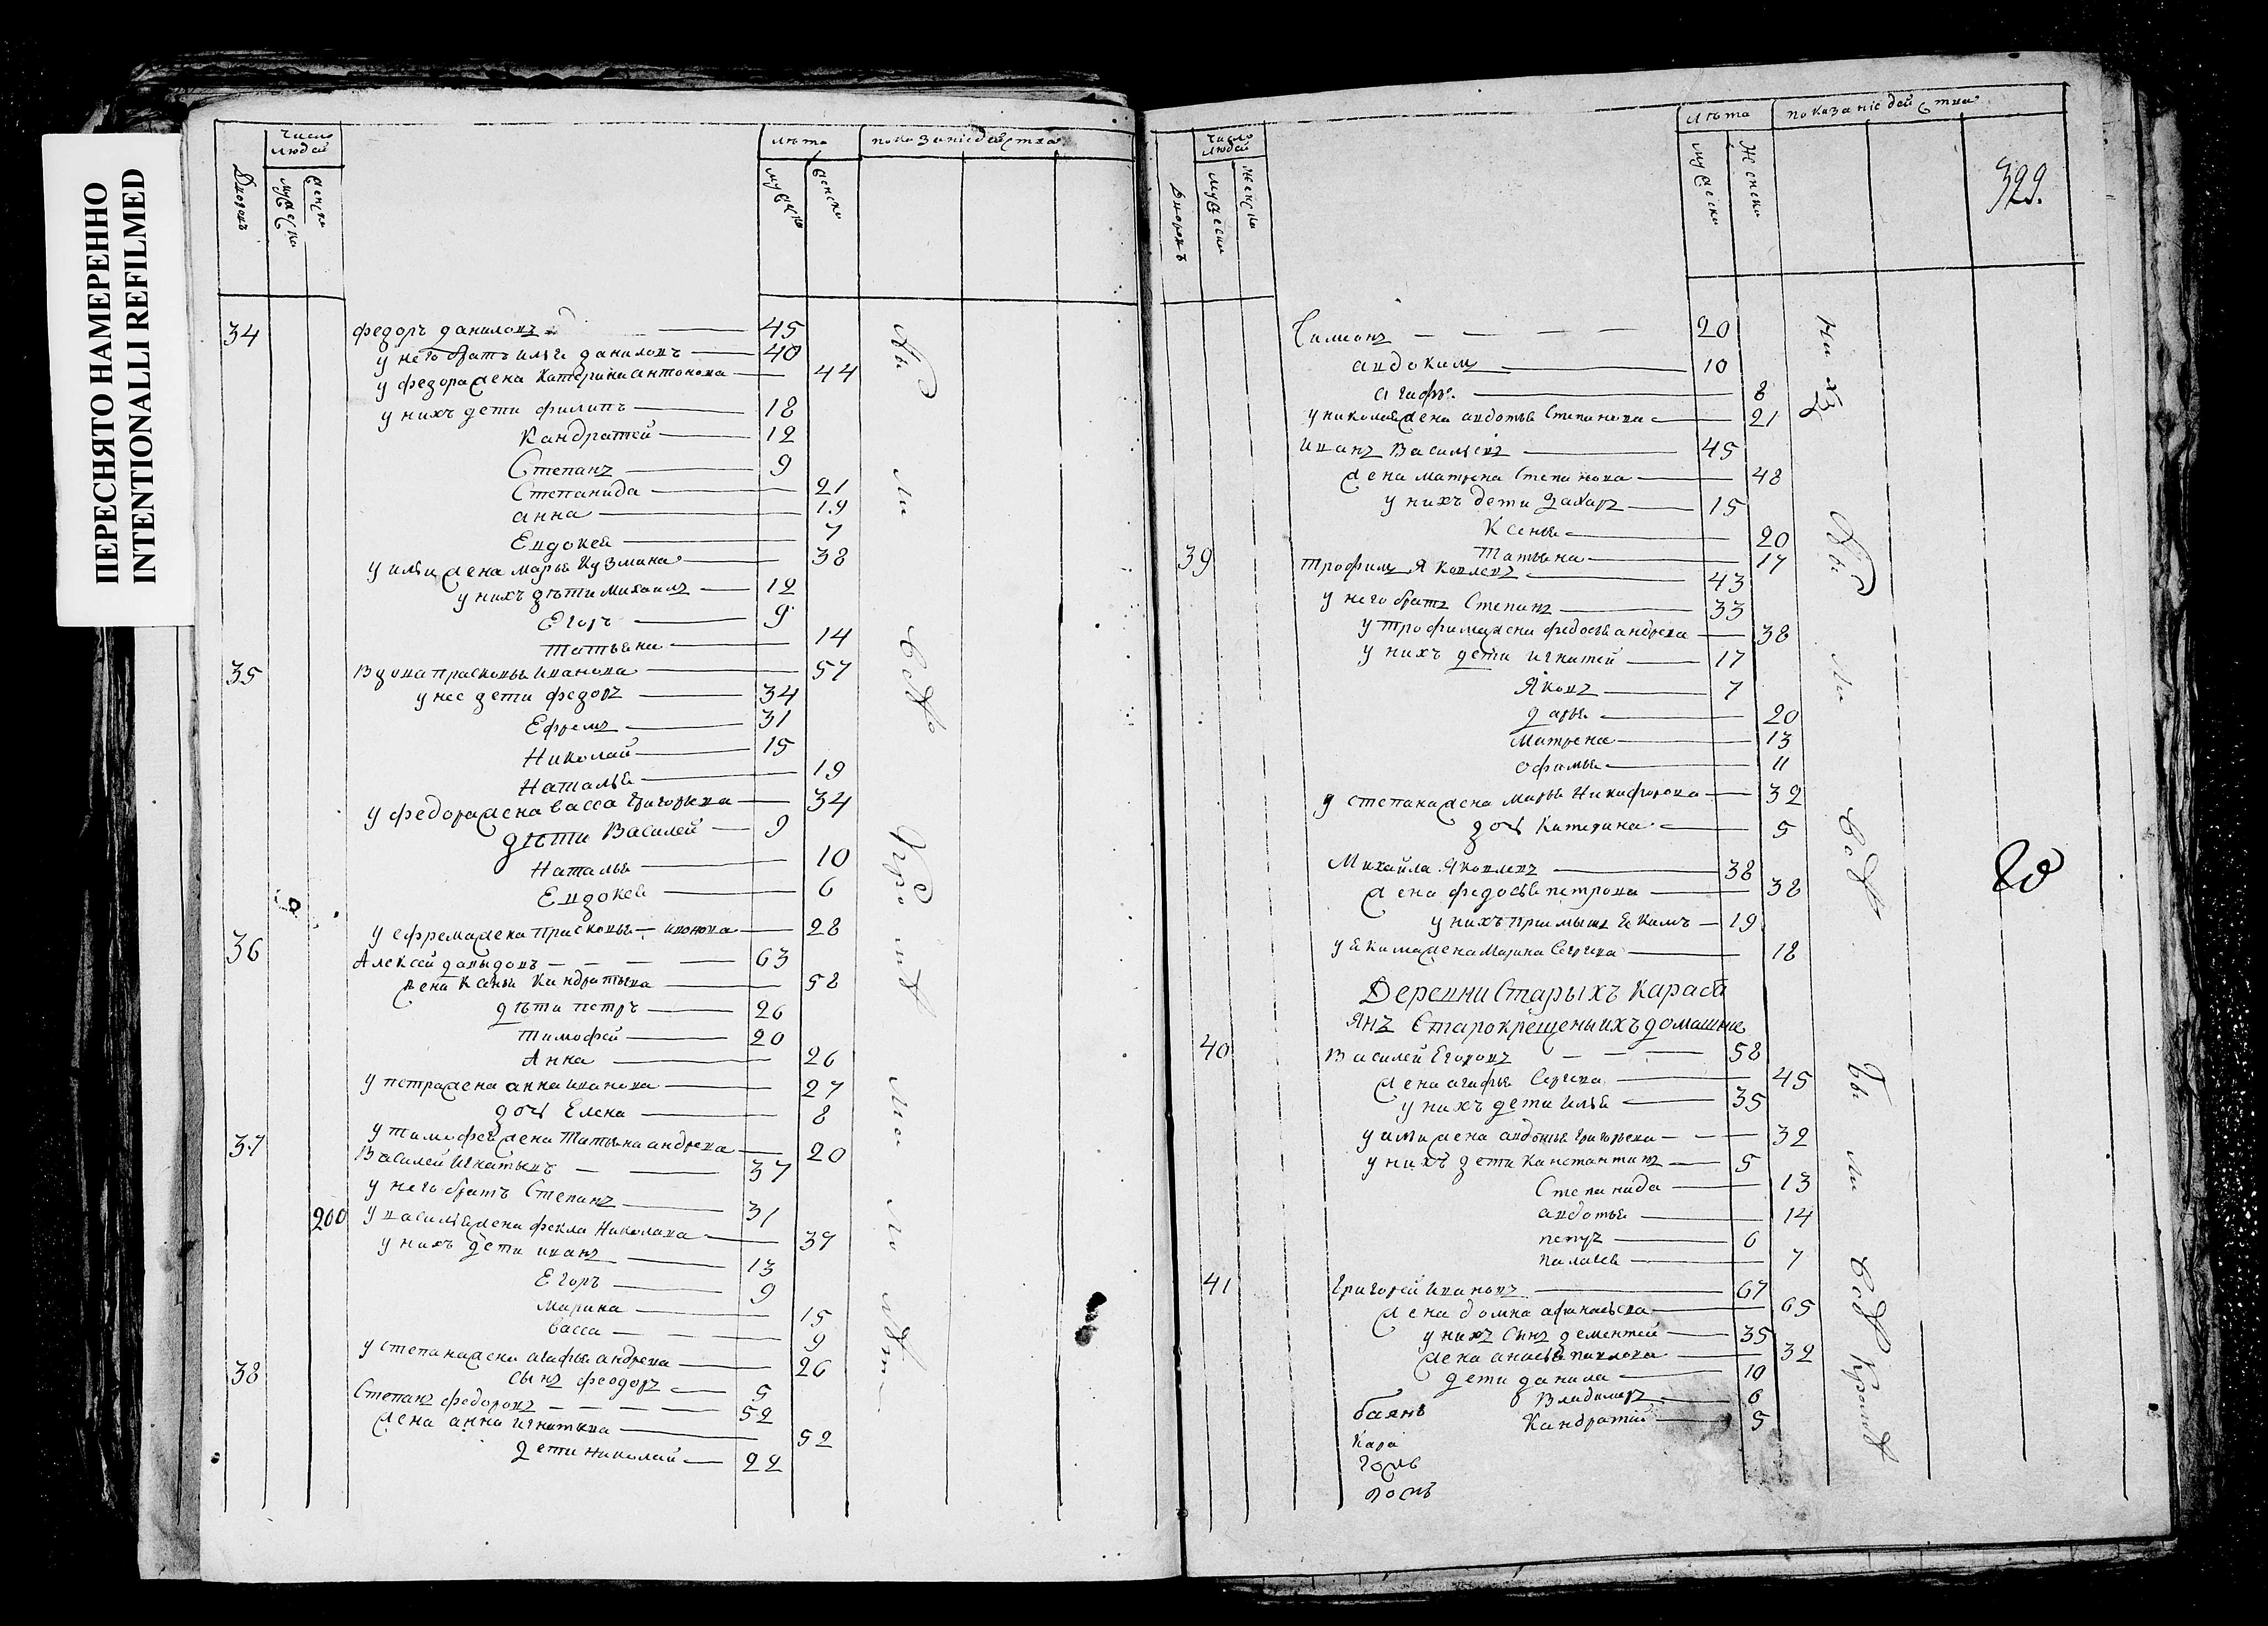 ПЕРЕСНЯТО НАМЕРЕННО
INTENTIONALLI REFILMED
Число людей
лѣта
показание действа
Дворовъ
мужески
женски
мужески
женски
34 федоръ даниловъ 45
у него братъ илья даниловъ 40
у федора жена Катерина антонова 44
у нихъ дети филипъ 18
Кандратей 12
Степанъ 9
Степанида 21
анна 19
Евдокея 7
у ильи жена марья Кузмина 38
у нихъ дѣти михаилъ 12
Егоръ 9
татьяна 14
35 Вдова прасковья иванова 57
у нее дети федоръ 34
Ефремъ 31
Николай 15
Наталья 19
у федора жена васса григорьева 34
дѣти Василей 9
Наталья 10
Евдокея 6
у ефрема жена прасковья 28
36 Алексей давыдовъ 63
жена Ксенья Кандратьева 58
дѣти петръ 26
тимофей 20
Анна 26
у петра жена анна иванова 27
дочь Елена 8
у тимофея жена Татьяна андреева 20
37 Василей игнатьевъ 37
у него братъ Степанъ 31
200 у василья жена фекла Николаева 39
у нихъ дети иванъ 13
Егоръ 9
марина 15
васса 9
у степана жена агафья андреева 26
сынъ феодоръ 5
38 Степанъ федоровъ 52
жена анна игнатьева 52
дети николай 22
Число людей
лѣта
показание действа
Дворовъ
мужески
женски
мужески
женски
329.
Симионъ 20
авдокимъ 10
агафья 8
у николая жена авдотья Степанова 21
иванъ Васильевъ 45
жена матрена Степанова 48
у нихъ дети Захаръ 15
Ксенья 20
татьяна 17
39 трофимъ Яковлевъ 43
у него братъ Степанъ 33
у трофима жена федосья андреева 38
у нихъ дети игнатей 17
Яковъ 7
дарья 20
матрена 13
офимья 11
у степана жена марья Никифорова 32
дочь Катерина 5
Михайла Яковлевъ 38
жена федосья петрова 38
у нихъ приимышъ Екимъ 19
у екима жена марина Сергеева 18
Деревни Старыхъ Карасе
янъ Старокрещеныхъ домашне
40 Василей Егоровъ 58
жена агафья Сергеева 45
у нихъ дети илья 35
у ильи жена авдотья григорьева 32
у нихъ дети Канстантинъ 5
Степанида 13
авдотья 14
петръ 6
палагея 7
41 Григорей ивановъ 67
жена домна афанасьева 65
у нихъ сынъ дементей 35
жена анисья павлова 32
дети данила 10
Владимеръ 6
Кандратий 5
Кара